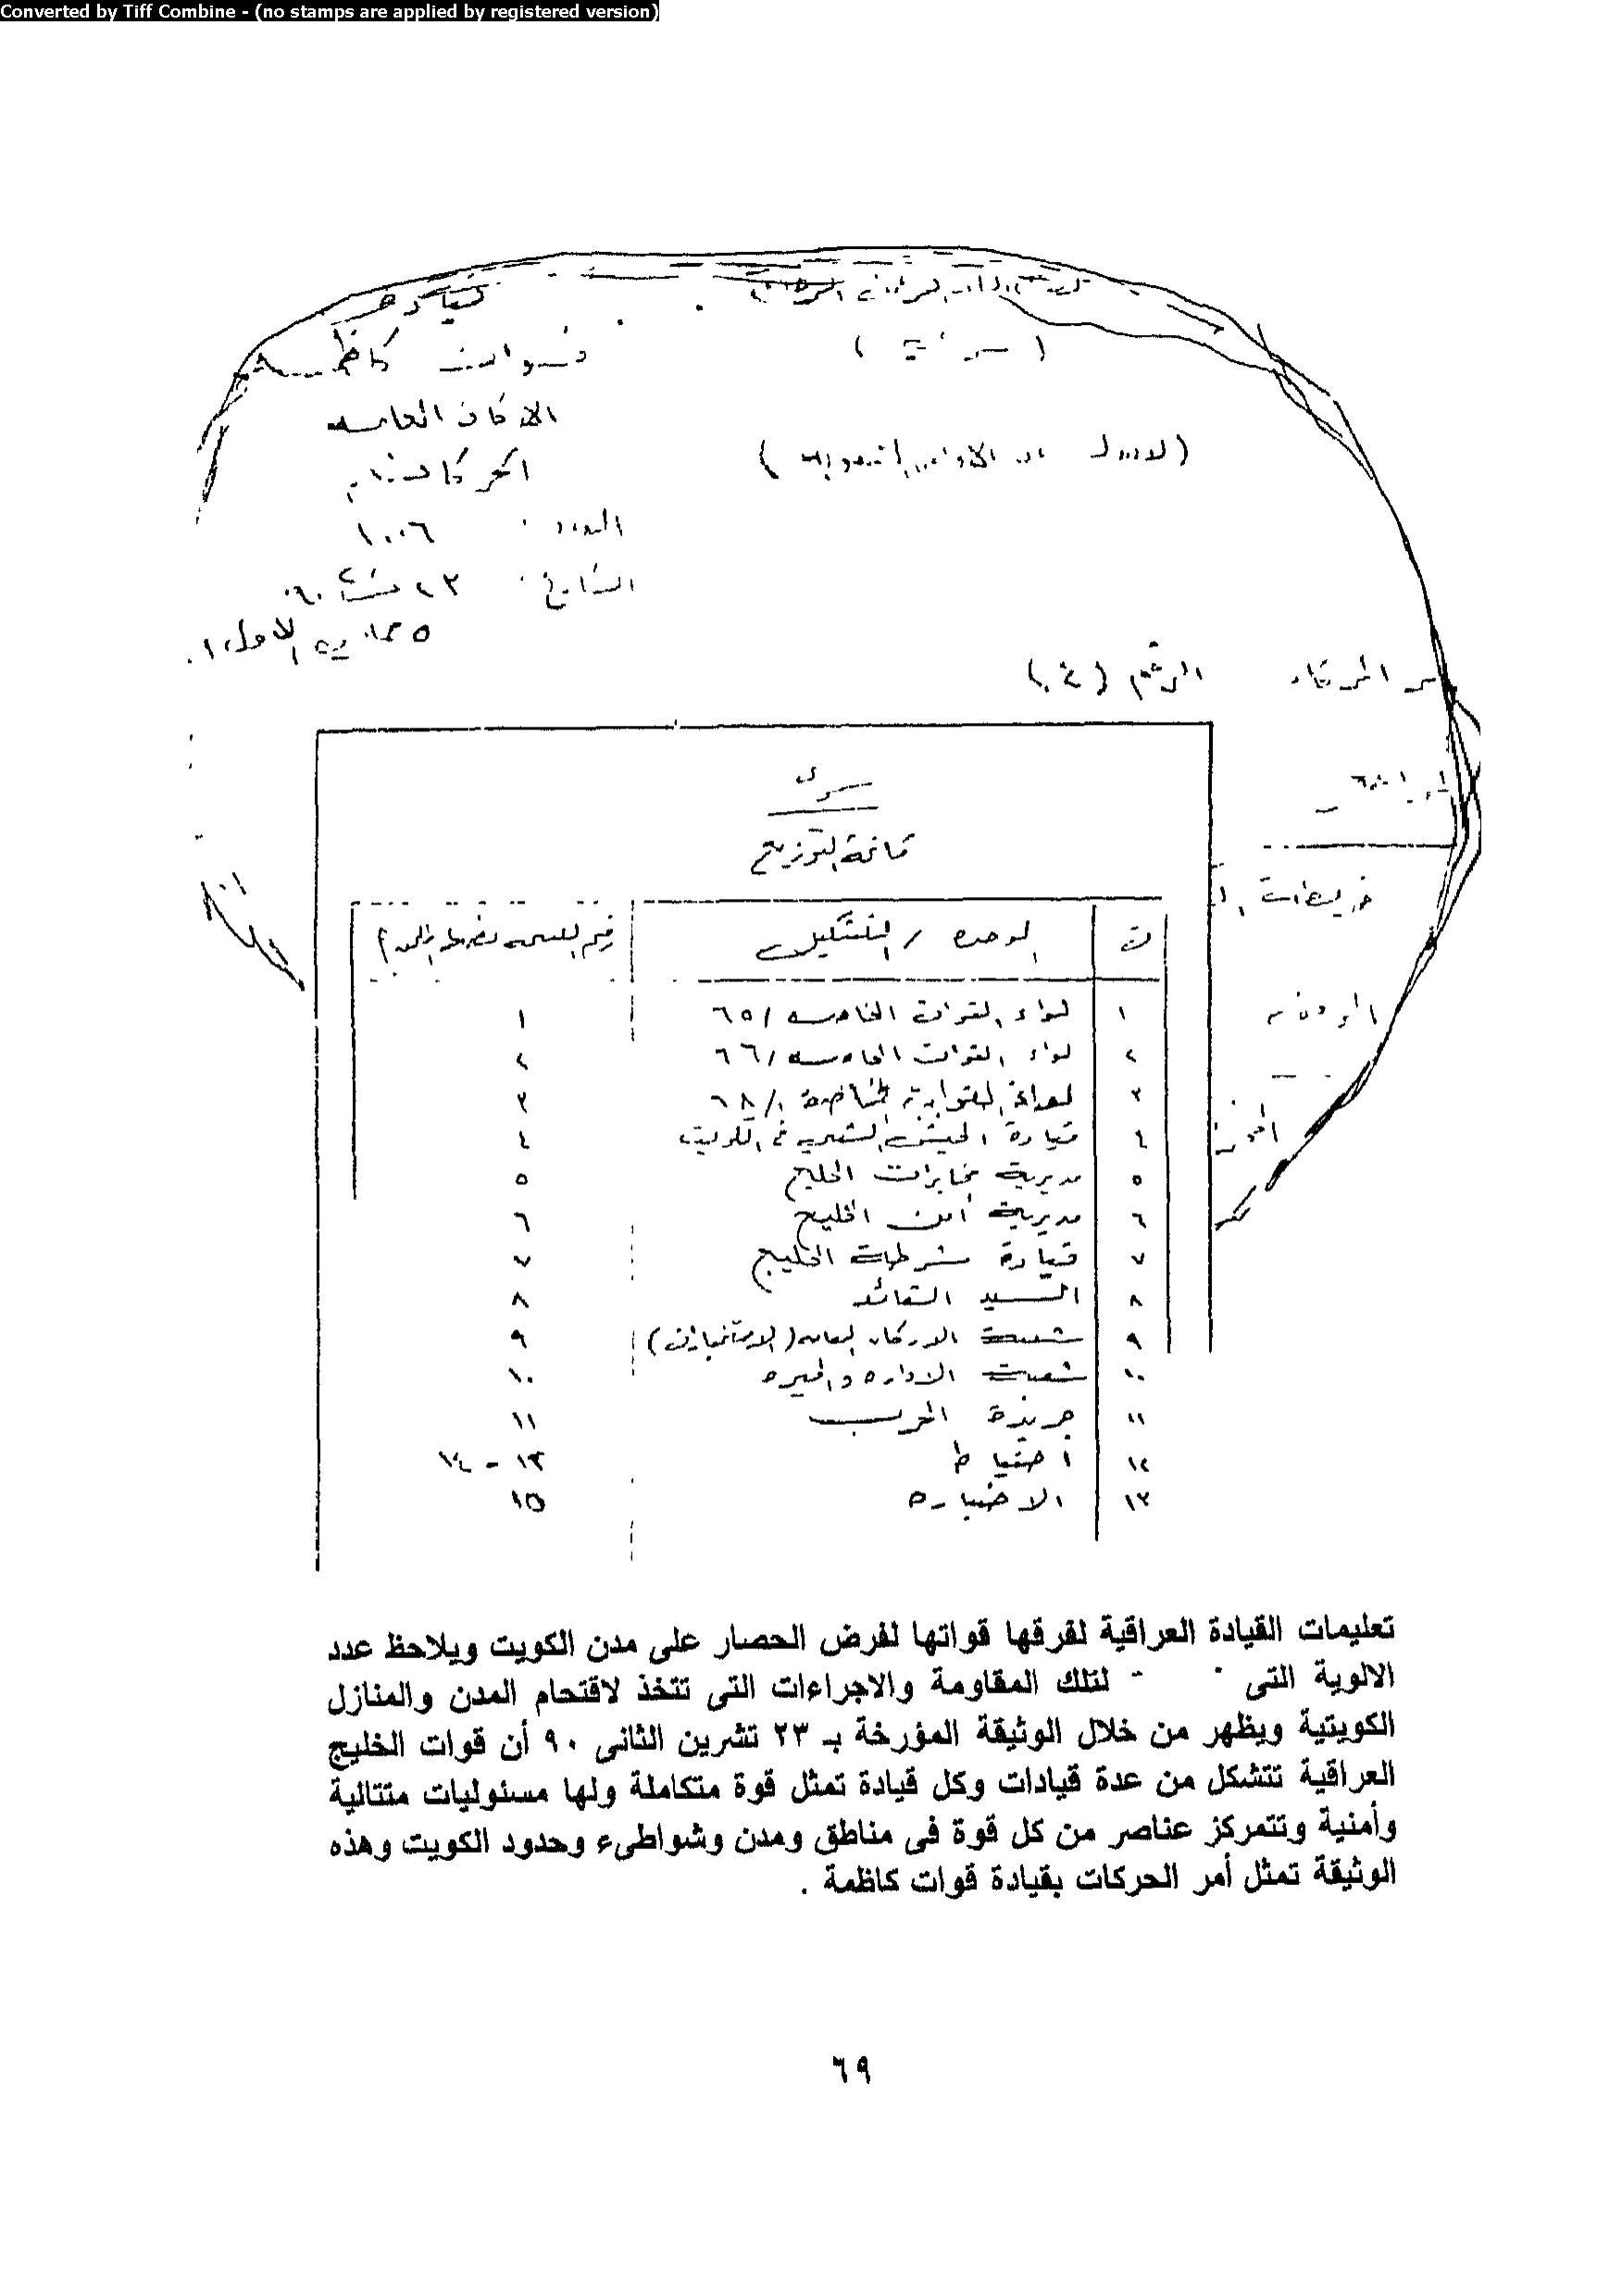 Converted by Tiff Combine - (no stamps are applied by registered version)
قيادة
قوات كاظمة
الاركان العامه
الحركات
العدد : ١٠٠٦
التاريخ : ٢٣
٥ الاول
الرقم (٤٠)
سري
قائمة التوزيع
ت الوحده / التشكيل رقم النسخه
١ لواء القوات الخاصه /٦٥ ١
٢ لواء القوات الخاصه /٦٦ ٢
٣ لواء القوات الخاصة /٦٨ ٣
٤ قيادة الجيش الشعبي في الكويت ٤
٥ مديرية مخابرات الخليج ٥
٦ مديرية أمن الخليج ٦
٧ قيادة شرطة الخليج ٧
٨ السيد القائد ٨
٩ شعبة الاركان العامه (الاستخبارات) ٩
١٠ شعبة الاداره والميره ١٠
١١ جريدة الحرب ١١
١٢ أحتياط ١٢ - ١٤
١٣ الاضباره ١٥
تعليمات القيادة العراقية لفرقها قواتها لفرض الحصار على مدن الكويت ويلاحظ عدد
الالوية التى لتلك المقاومة والاجراءات التى تتخذ لاقتحام المدن والمنازل
الكويتية ويظهر من خلال الوثيقة المؤرخة بـ ٢٣ تشرين الثانى ٩٠ أن قوات الخليج
العراقية تتشكل من عدة قيادات وكل قيادة تمثل قوة متكاملة ولها مسئوليات متتالية
وأمنية وتتمركز عناصر من كل قوة فى مناطق ومدن وشواطىء وحدود الكويت وهذه
الوثيقة تمثل أمر الحركات بقيادة قوات كاظمة .
٦٩